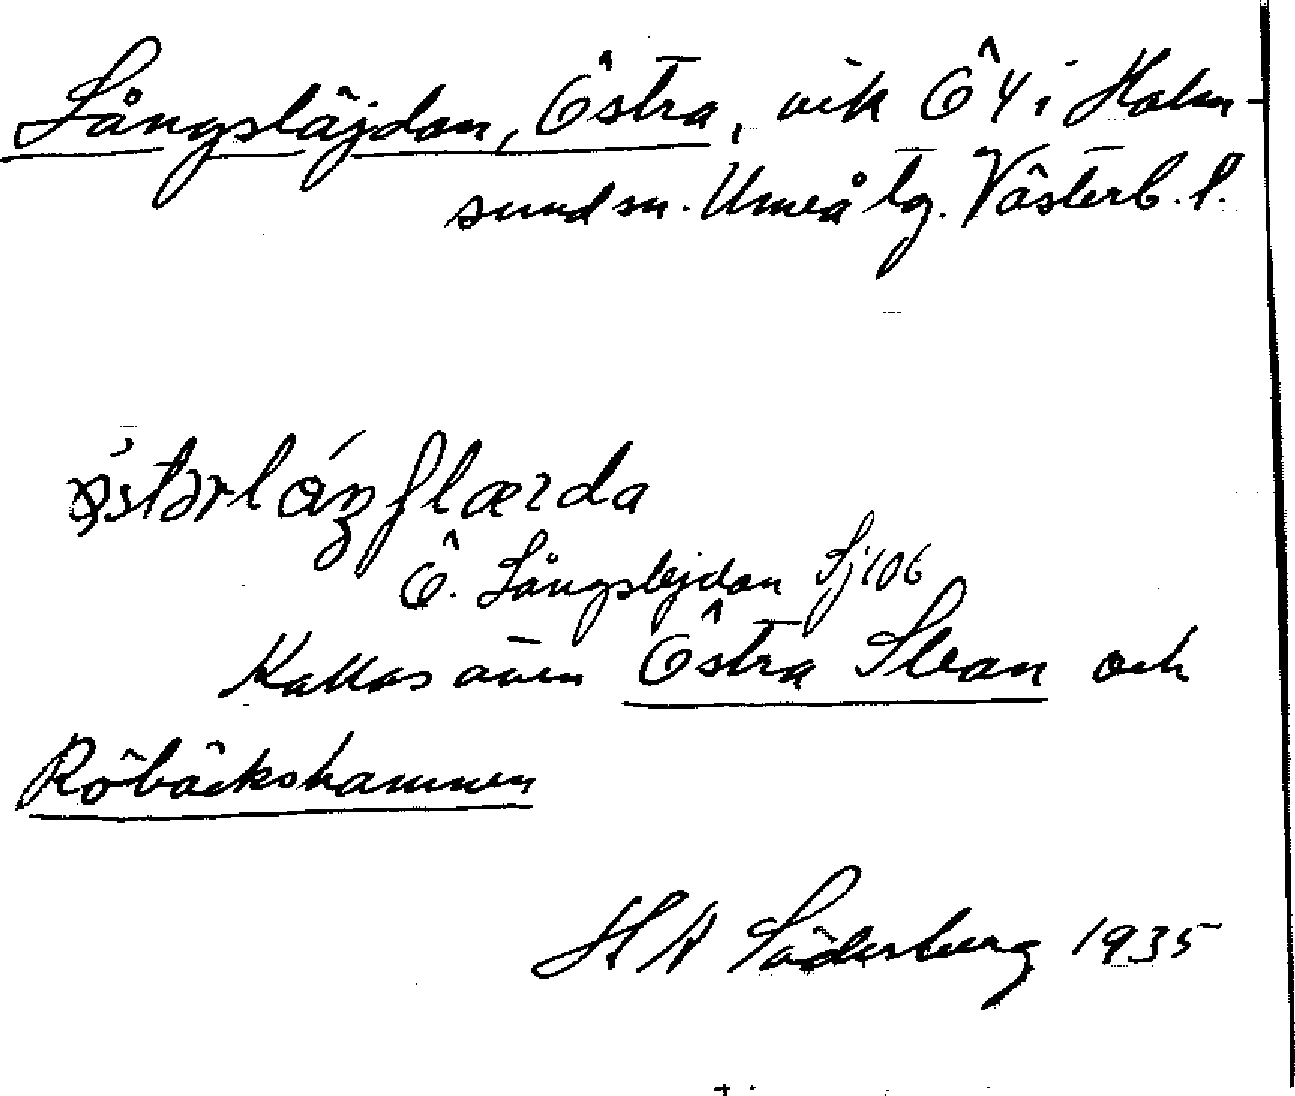 Långsläjdan, Östra, vik Ö4 i Holm-
sund sn. Umeå tg. Västerb. l.
Ö. Långslejdan Sj 106
Kallas även Östra Slean och
Röbäckshamnen
H A Söderberg 1935